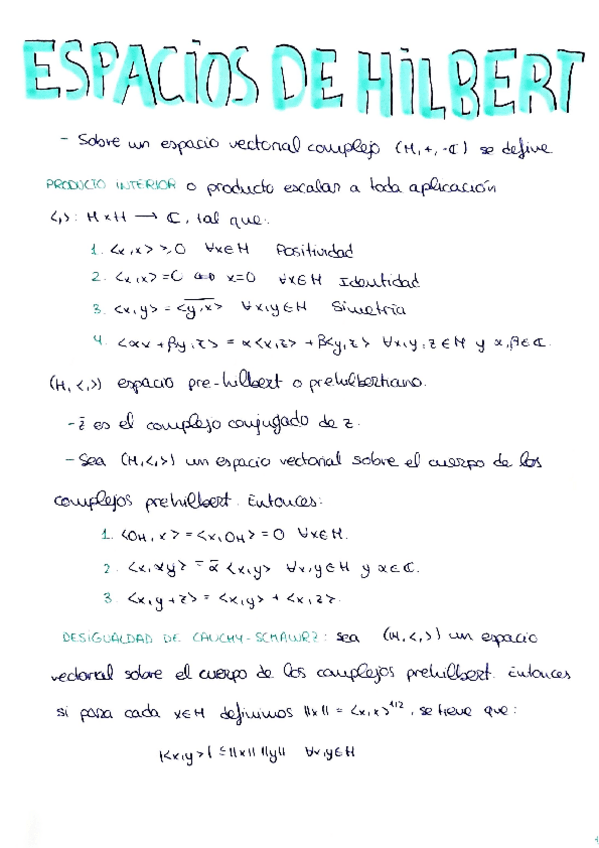 ESPACIOS DE HILBERT
- Sobre un espacio vectorial complejo (H,+,·ℂ) se define
PRODUCTO INTERIOR o producto escalar a toda aplicación
<,>: H x H → ℂ, tal que:
1. <x,x> ≥ 0 ∀x∈H Positividad
2. <x,x> = 0 ⇔ x=0 ∀x∈H Identidad
3. <x,y> = \overline{<y,x>} ∀x,y∈H Simetría
4. <αx + βy, z> = α<x,z> + β<y,z> ∀x,y,z∈H y α,β∈ℂ.
(H,<,>) espacio pre-hilbert o prehilbertiano.
- z̄ es el complejo conjugado de z.
- Sea (H,<,>) un espacio vectorial sobre el cuerpo de los
complejos prehilbert. Entonces:
1. <0H, x> = <x, 0H> = 0 ∀x∈H.
2. <x, αy> = ᾱ <x,y> ∀x,y∈H y α∈ℂ.
3. <x, y+z> = <x,y> + <x,z>.
DESIGUALDAD DE CAUCHY-SCHAWRZ: sea (H,<,>) un espacio
vectorial sobre el cuerpo de los complejos prehilbert. Entonces
si para cada x∈H definimos ||x|| = <x,x>^1/2, se tiene que:
|<x,y>| ≤ ||x|| ||y|| ∀x,y∈H